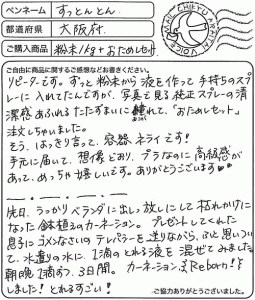 ペンネーム すっとんとん
都道府県 大阪府
ご購入商品 粉末1kg+おためしセット
ご自由に商品に関するご感想などお書きください。
リピーターです。ずっと粉末から液を作って手持ちのスプ
レーに入れてたんですが、写真で見る純正スプレーの清
潔感あふれるたたずまいに憧れて、「おためしセット」
注文しちゃいました。
そう、はっきり言って、容器ネライです!
手元に届いて、想像どおり、プラなのに高級感が
あって、めっちゃ嬉しいです。ありがとうございます
先日、うっかりベランダに出しっ放しにして枯れかけに
なった鉢植えのカーネーション。プレゼントしてくれた
息子にゴメンなさいのテレパシーを送りながら、ふと思いつい
て、水遣りの水に、1滴のとれる液を混ぜてみました。
朝晩1滴ずつ、3日間。カーネーション、Reborn!!
しました!とれるすごい!
ご協力ありがとうございました。